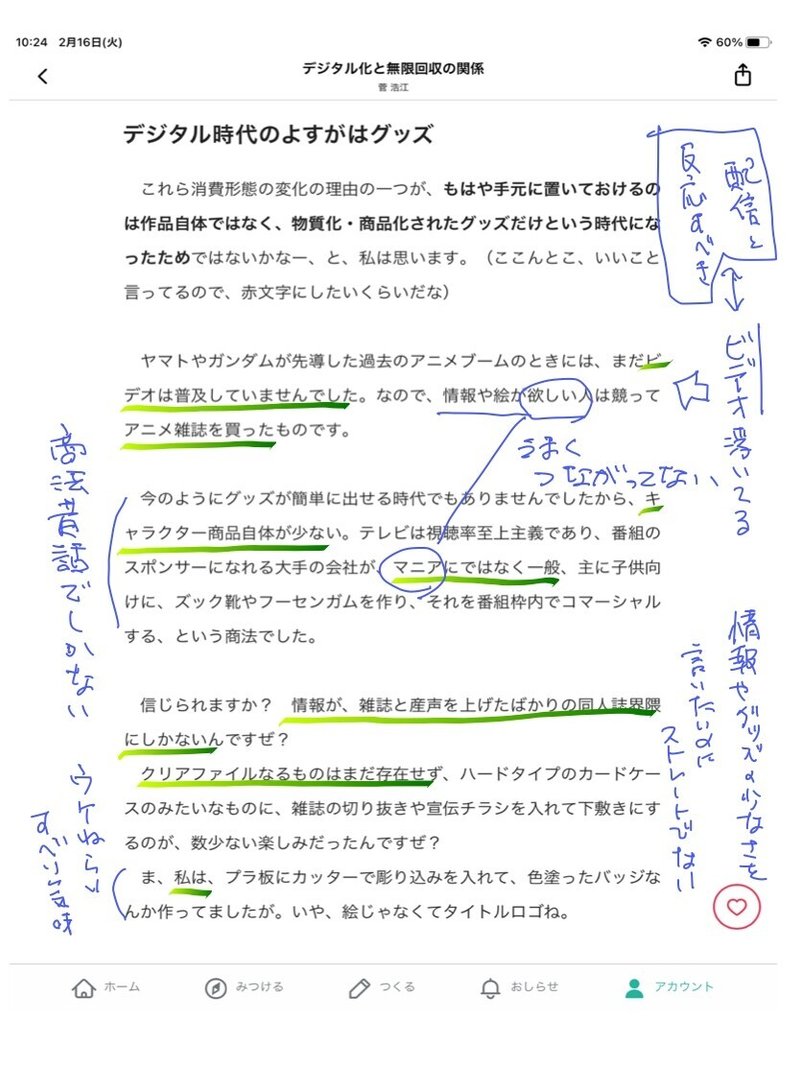 10:24 2月16日(火)
60%
デジタル化と無限回収の関係
菅 浩江
デジタル時代のよすがはグッズ
これら消費形態の変化の理由の一つが、もはや手元に置いておけるの
は作品自体ではなく、物質化・商品化されたグッズだけという時代にな
ったためではないかなー、と、私は思います。（ここんとこ、いいこと
言ってるので、赤文字にしたいくらいだな）
配信と
反応すべき
ヤマトやガンダムが先導した過去のアニメブームのときには、まだビ
デオは普及していませんでした。なので、情報や絵が欲しい人は競って
アニメ雑誌を買ったものです。
ビデオ
いてる
うまく
つながってない
今のようにグッズが簡単に出せる時代でもありませんでしたから、キ
ャラクター商品自体が少ない。テレビは視聴率至上主義であり、番組の
スポンサーになれる大手の会社が、マニアにではなく一般、主に子供向
けに、ズック靴やフーセンガムを作り、それを番組枠内でコマーシャル
する、という商法でした。
商法昔話でしかない
信じられますか？　情報が、雑誌と産声を上げたばかりの同人誌界隈
にしかないんですぜ？
クリアファイルなるものはまだ存在せず、ハードタイプのカードケー
スのみたいなものに、雑誌の切り抜きや宣伝チラシを入れて下敷きにす
るのが、数少ない楽しみだったんですぜ？
ま、私は、プラ板にカッターで彫り込みを入れて、色塗ったバッジな
んか作ってましたが。いや、絵じゃなくてタイトルロゴね。
情報やグッズの少なさを
言いたいのに
ストレートでない
ウケねらい
すべり気味
ホーム
みつける
つくる
おしらせ
アカウント